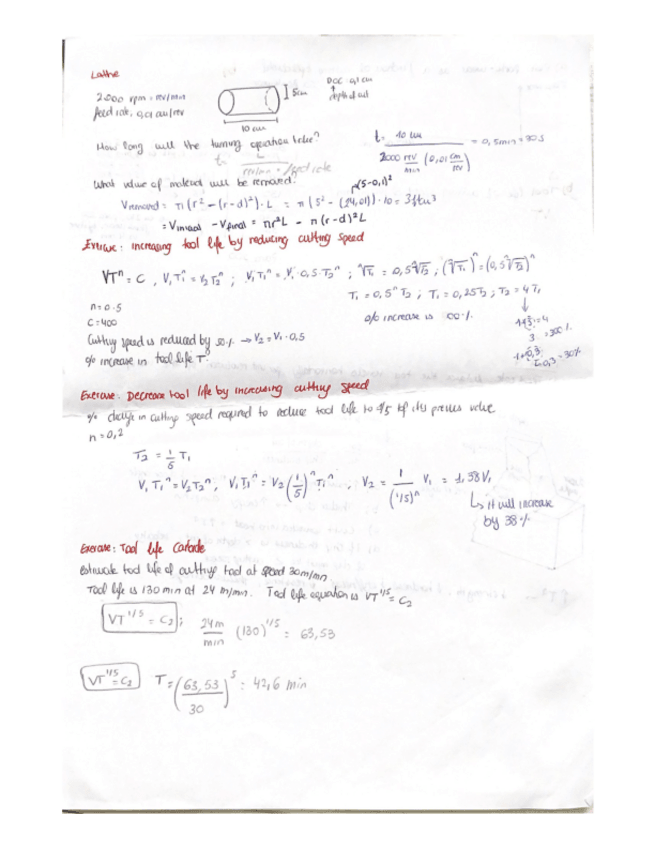 Lathe
2000 rpm = rev/min
feed rate, 0,01 cm/rev
5cm
10 cm
DOC 0,1 cm
depth of cut
How long will the turning operation take?
t = L
t = 10 cm / 2000 rev/min (0,01 cm/rev) = 0,5min = 30 s
What value of material will be removed?
r(5-0,1)²
Vremoved = π(r² - (r-d)²) · L = π(5² - (24,01)) · 10 =
= Vinitial - Vfinal = πr²L - π(r-d)²L
Exercise: Increasing tool life by reducing cutting speed
VTⁿ = C , V₁T₁ⁿ = V₂T₂ⁿ ; V₁T₁ⁿ = V₁·0,5·T₂ⁿ ; ⁿ√T₁ = 0,5ⁿ√T₂ ; (ⁿ√T₁)ⁿ = (0,5ⁿ√T₂)ⁿ
T₁ = 0,5ⁿT₂ ; T₁ = 0,25T₂ ; T₂ = 4T₁
n = 0.5
C = 400
% increase is
Cutting speed is reduced by 50% → V₂ = V₁·0,5
1+3 = 4
3 = 300%
% increase in tool life T
1+0,3
0,3 = 30%
Exercise: Decrease tool life by increasing cutting speed
% change in cutting speed required to reduce tool life to 1/5 of its previous value
n = 0,2
T₂ = 1/5 T₁
V₁T₁ⁿ = V₂T₂ⁿ, V₁T₁ⁿ = V₂(1/5)ⁿT₁ⁿ, V₂ = 1/(1/5)ⁿ V₁ = 1,38V₁
↳ It will increase
by 38%
Exercise: Tool life Carbide
Estimate tool life of cutting tool at speed 30m/min
Tool life is 130 min at 24 m/min. Tool life equation is VT^1/5 = C₂
VT^1/5 = C₂ ; 24m/min (130)^1/5 = 63,53
VT^1/5 = C₂ T = (63,53/30)⁵ = 42,6 min